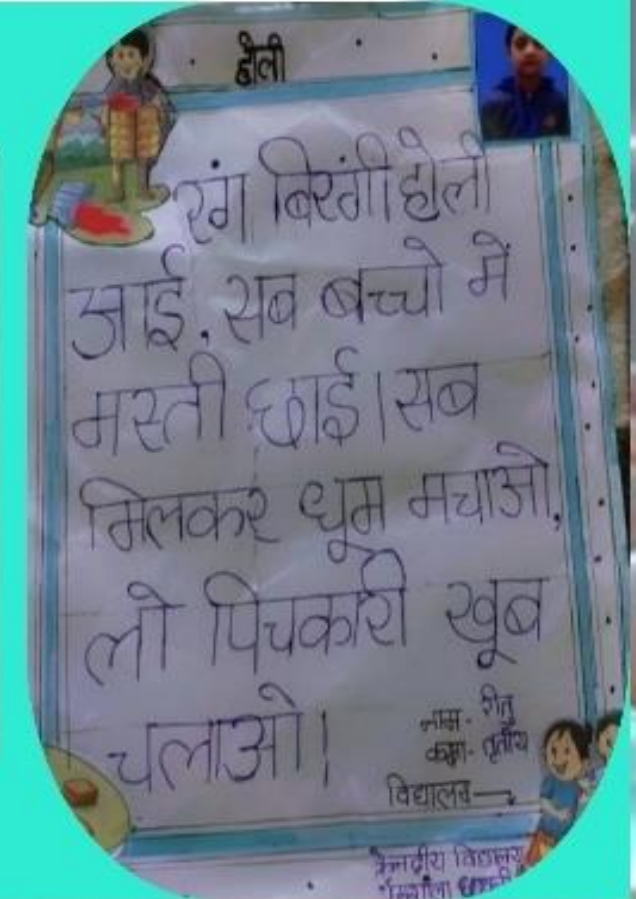 होली
रंग बिरंगी होली
आई, सब बच्चो में
मस्ती छाई। सब
मिलकर धूम मचाओ,
लो पिचकारी खूब
चलाओ।
नाम - रीतु
कक्षा - तृतीय
विद्यालय →
केन्द्रीय विद्यालय